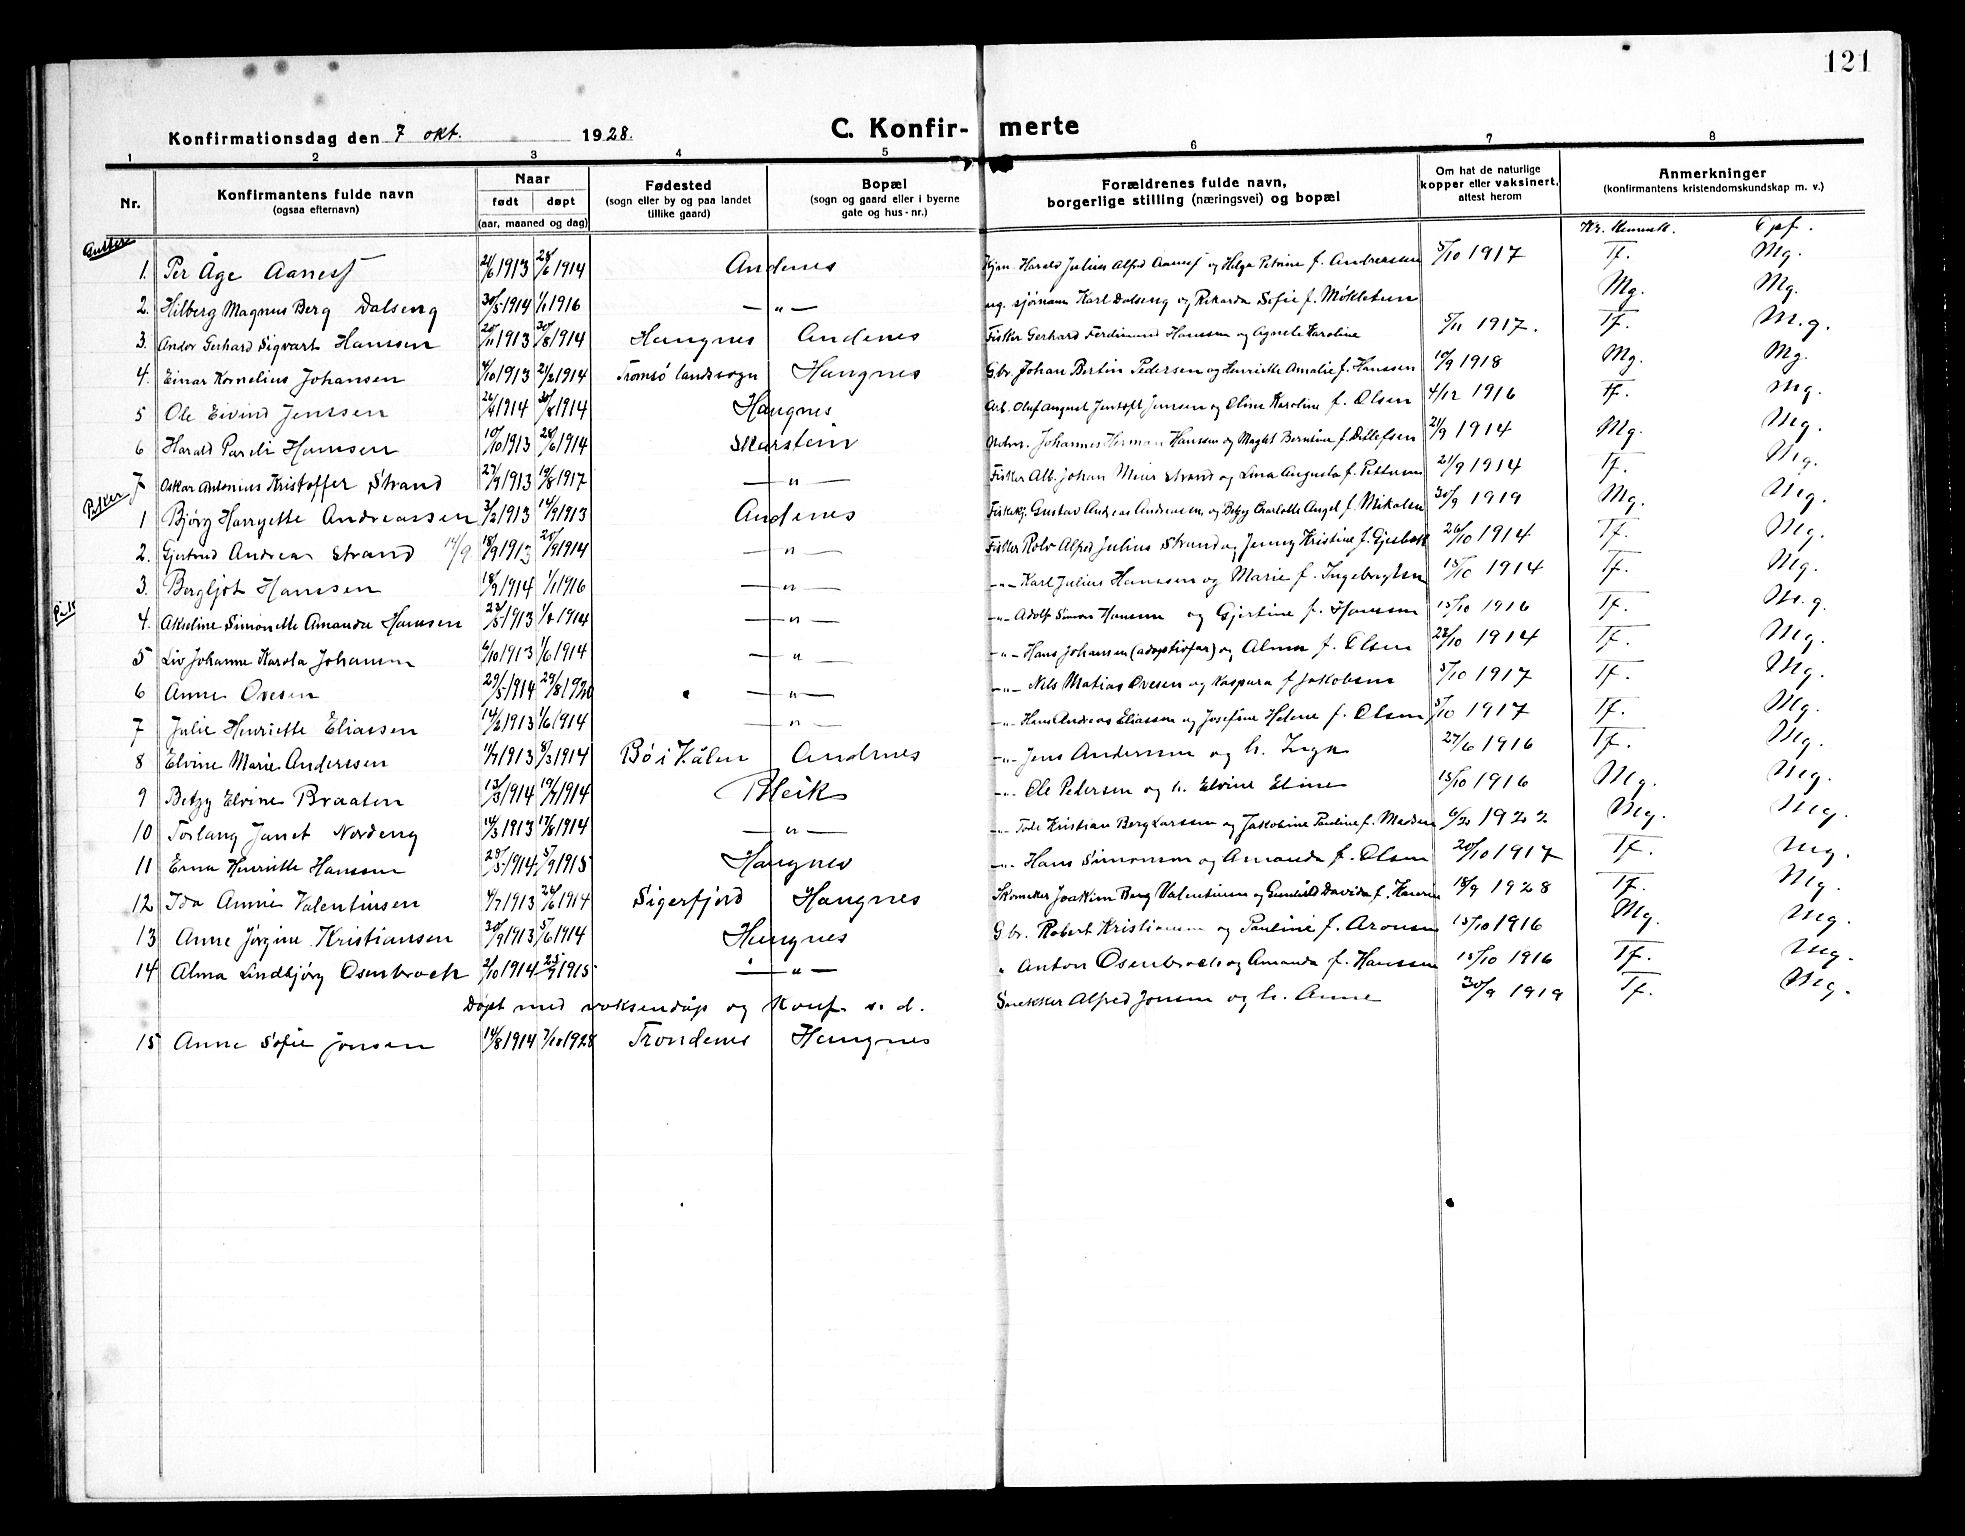 121
Konfirmationsdag den 7 okt. 1928. C. Konfirmerte
1 2 3 4 5 6 7 8
Nr. Konfirmantens fulde navn (ogsaa efternavn) Naar født døpt (aar, maaned og dag) Fødested (sogn eller by og paa landet tillike gaard) Bopæl (sogn og gaard eller i byerne gate og hus-nr.) Forældrenes fulde navn, borgerlige stilling (næringsvei) og bopæl Om hat de naturlige kopper eller vaksinert, attest herom Anmerkninger (konfirmantens kristendomskundskap m. v.)
Gutter
1. Per Åge Aanes 1913 28/6 1914 Andenes Harald Julius Alfred Aanes og Helga Petrine f. Andreassen 5/10 1917 Tf. Mg.
2. Hilberg Magnus Berg Dalseng 30/5 1914 1/1 1916 — " — Karl Dalseng og Rikarda Sofie f. Mökleberg Mg. Mg.
3. Andor Gerhard Sigvart Hanssen 20/11 1913 30/8 1914 Haugnes Andenes Fisker Gerhard Ferdinand Hanssen og Agnete Karoline 5/11 1917. Tf. M.g.
4. Einar Kornelius Johansen 1913 21/2 1914 Tromsö landsogn Haugnes G.br. Johan Bertin Pedersen og Henriette Amalie f. Hanssen 10/9 1918 Mg. Mg.
5 Ole Eivind Jenssen 1914 1914 Haugnes Arb. Oluf August Jentoft Jenssen og Oline Karoline f. Olsen 4/12 1916 Tf. Mg.
6 Harald Pareli Hanssen 10/10 1913 28/6 1914 Skarstein Johannes Herman Hanssen og Maght Berntine f. Detlefsen 21/9 1914 Mg. Mg.
7 Oskar Antonius Kristoffer Strand 27/9 1913 19/8 1917 — " — Fisker Alb. Johan Meier Strand og Lina Augusta f. Pettersen 21/9 1914 Tf. Mg.
Piker
1 Bjørg Harryette Andreassen 3/2 1913 14/9 1913 Andenes Gustav Andreas Andreassen og Betzy Charlotte Angel f. Mikalsen 30/9 1919 Mg. Mg.
2. Gjertrud Andrea Strand 14/9 18/9 1913 20/9 1914 — " — Fisker Rolv Alfred Julius Strand og Jenny Kristine f. Gjesbakk 26/10 1914 Tf. Mg.
3. Bergljot Hanssen 18/9 1914 1/1 1916 — " — — " — Karl Julius Hanssen og Marie f. Ingebrigtsen 15/10 1914 Tf. Mg.
4. Akseline Simonette Amanda Hanssen 22/5 1913 1914 — " — — " — Adolf Simon Hanssen og Gjertine f. Hanssen 15/10 1916 Tf. M.g.
5 Liv Johanne Karola Johansen 6/10 1913 1/6 1914 — " — — " — Hans Johansen (adoptivfar) og Alma f. Olsen 22/10 1914 Tf. Mg.
6 Anne Ovesen 29/5 1914 29/8 1920 — " — — " — Nils Matias Ovesen og Kaspara f Jakobsen 5/10 1917 Tf. Mg.
7 Julie Henriette Eliassen 14/2 1913 1/6 1914 — " — — " — Hans Andreas Eliassen og Josefine Helene f. Olsen 5/10 1917 Tf. Mg.
8 Elvine Marie Anderssen 1913 8/3 1914 Bö i V.ålen Andnes — " — Jens Anderssen og h. Inga 27/6 1916 Tf. Mg.
9 Betzy Elvine Braaten 13/3 1914 19/7 1914 Bleik — " — Ole Pedersen og h. Elvine Eline 15/10 1916 Mg. Mg.
10 Torlaug Janet Nordeng 14/3 1913 17/8 1914 — " — — " — Tode Kristian Berg Larssen og Jakobine Pauline f. Madsen 1922 Mg. Mg.
11 Erna Henriette Hanssen 29/5 1914 5/9 1915 Haugnes — " — Hans Simonsen og Amanda f. Olsen 20/10 1917 Tf. Mg.
12 Ida Annie Valentinsen 1913 26/6 1914 Sigerfjord Haugnes Skomaker Joakim Berg Valentinsen og Gunhild Davida f. 18/9 1928 Tf. Mg.
13 Anne Jørgine Kristiansen 20/9 1913 5/6 1914 Haugnes G.br. Robert Kristiansen og Pauline f. Aronsen 15/10 1916 Mg. Mg.
14 Alma Lindbjørg Osenbroch 2/10 1914 25/9 1915 — " — " Anton Osenbroch og Amanda f. Hanssen 15/10 1916 Tf. Mg.
Døpt med voksendåp og Konf. s. d. Snekker Alfred Jonsen og h. Anne 30/9 1919 Tf. Mg.
15 Anne Sofie Jonsen 14/8 1914 7/10 1928 Trondenes Haugnes